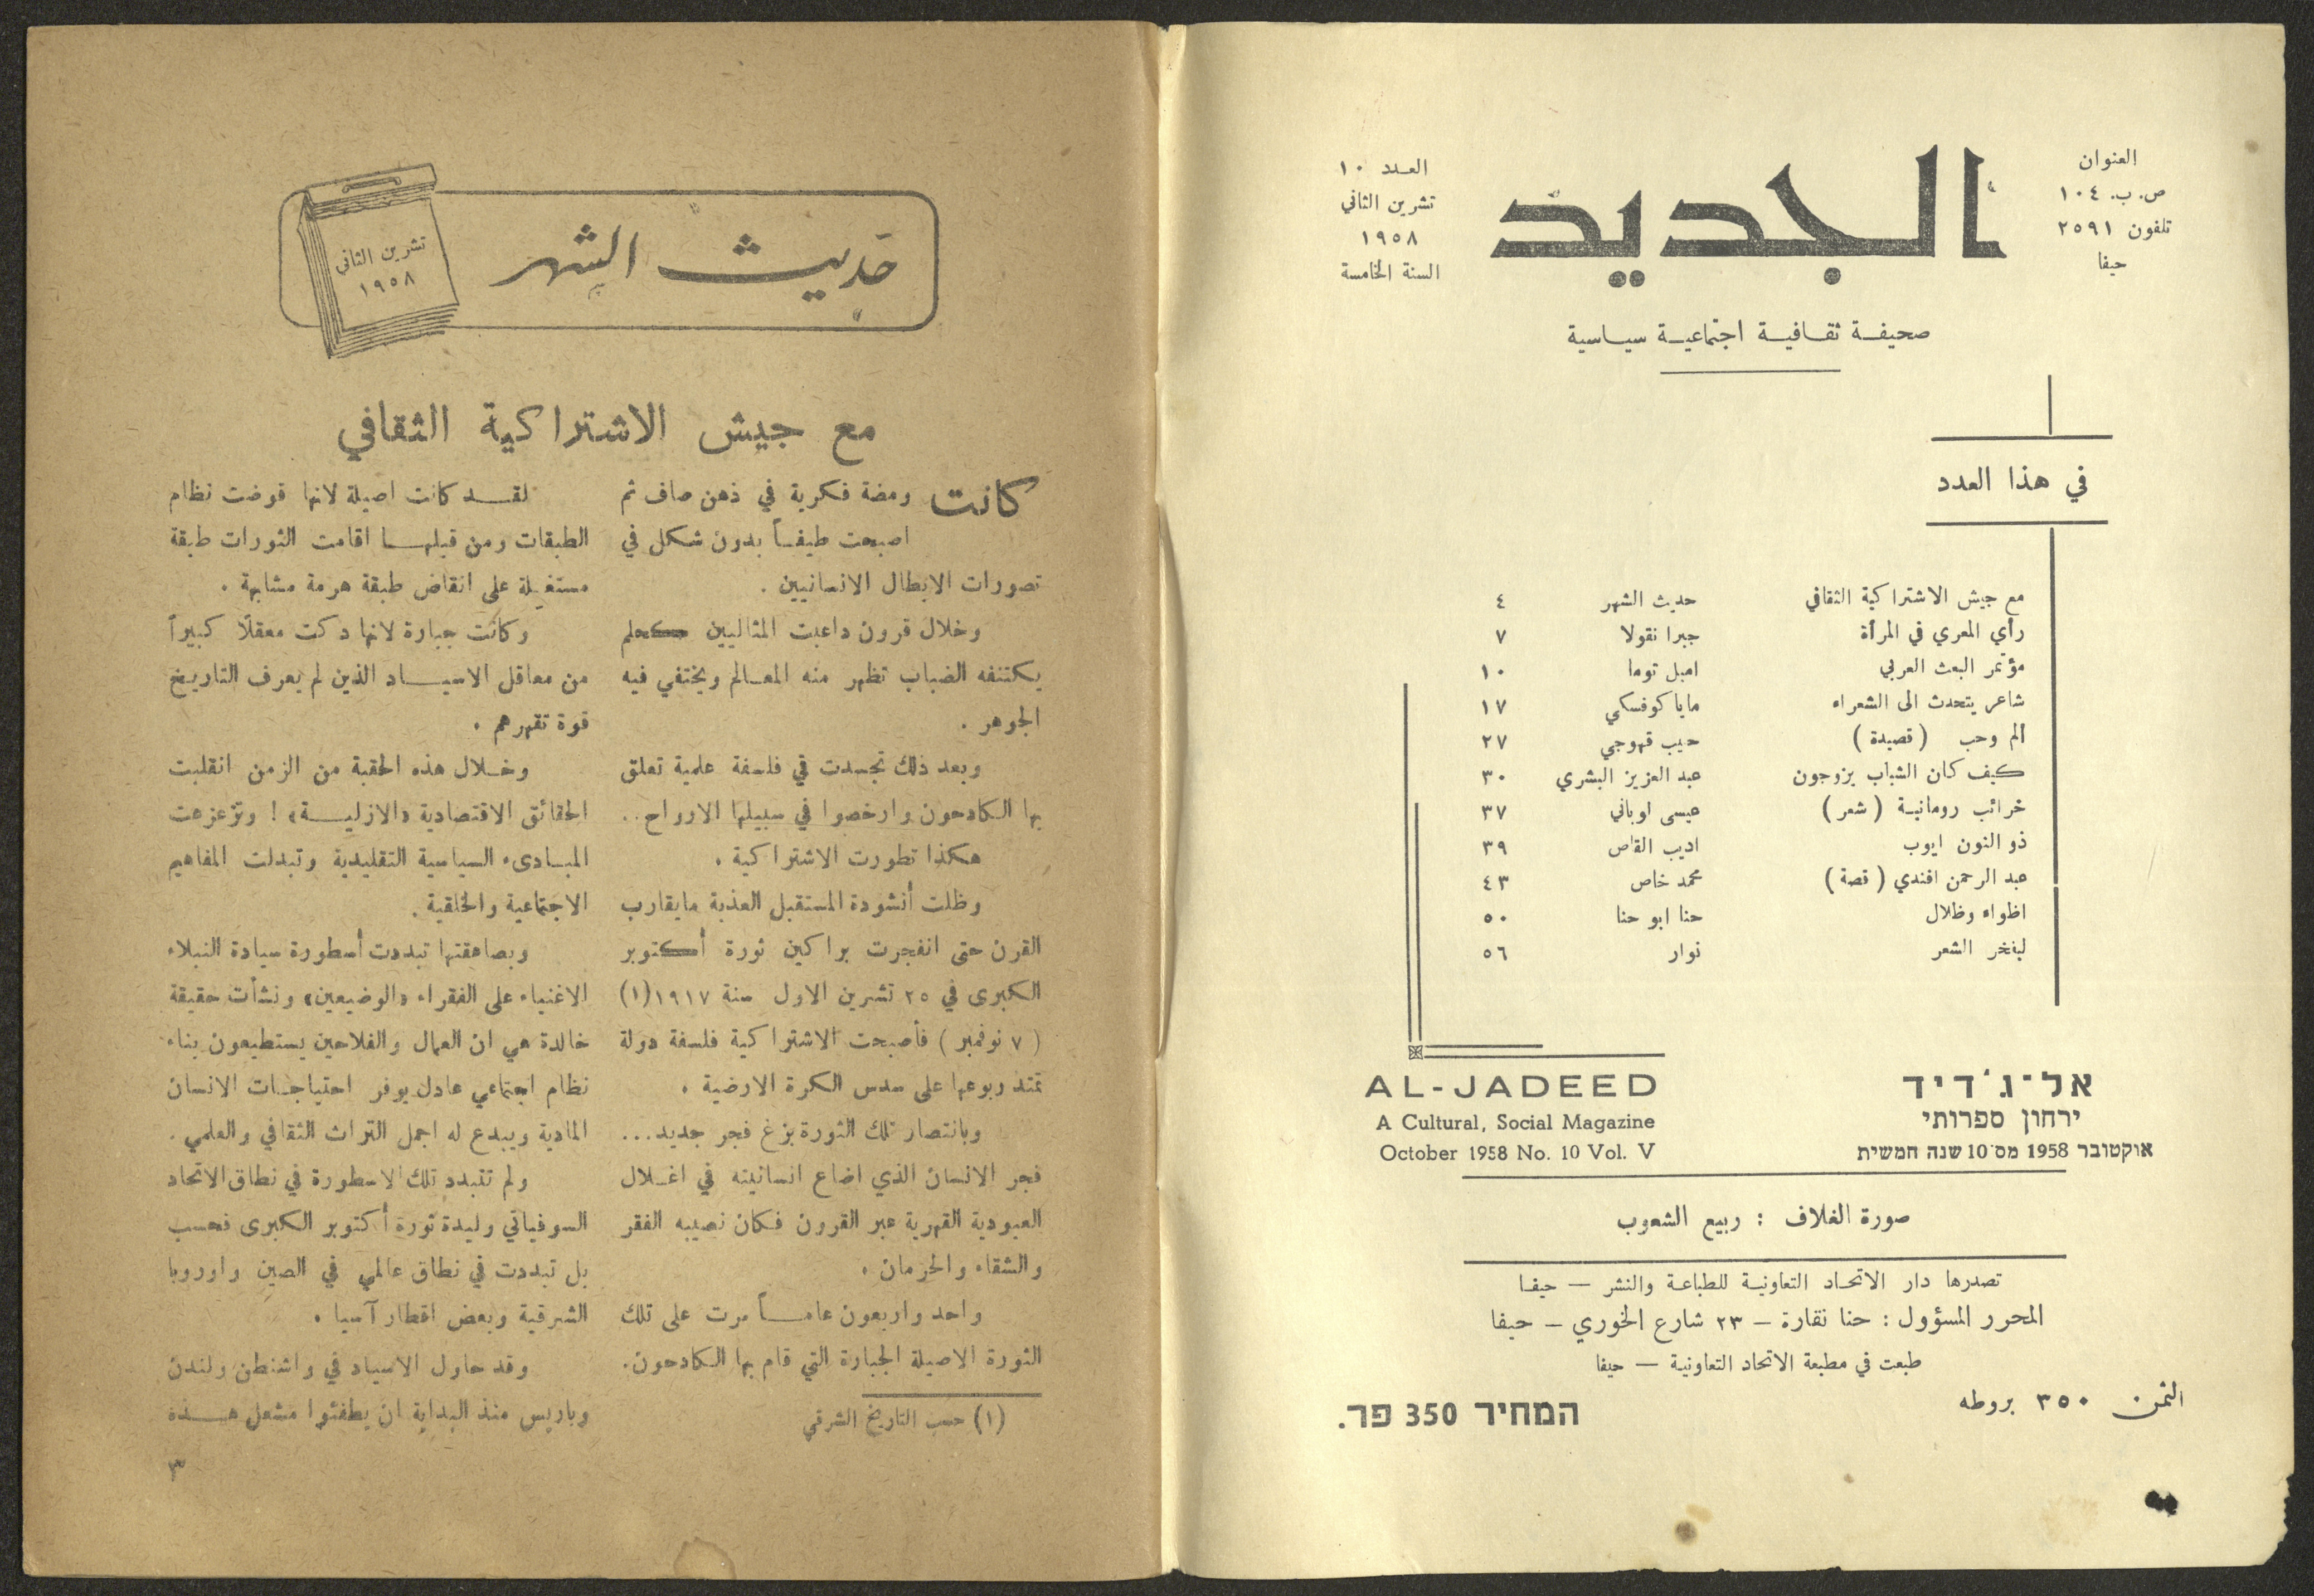 العنوان
ص. ب. ١٠٤
تلفون ٢٥٩١
حيفا
الجديد
العدد ١٠
تشرين الثاني
١٩٥٨
السنة الخامسة
صحيفة ثقافية اجتماعية سياسية
في هذا العدد
مع جيش الاشتراكية الثقافي حديث الشهر ٤
رأي المعري في المرأة جبرا نقولا ٧
مؤتمر البعث العربي اميل توما ١٠
شاعر يتحدث الى الشعراء ماياكوفسكي ١٧
ألم وحب (قصيدة) حبيب قهوجي ٢٧
كيف كان الشباب يزوجون عبد العزيز البشري ٣٠
خرائب رومانية (شعر) عيسى لوباني ٣٧
ذو النون ايوب اديب القاص ٣٩
عبد الرحمن افندي (قصة) محمد خاص ٤٣
اظواء وظلال حنا ابو حنا ٥٠
ليفخر الشعر نوار ٥٦
AL-JADEED
A Cultural, Social Magazine
October 1958 No. 10 Vol. V
אל־ג'דיד
ירחון ספרותי
אוקטובר 1958 מס' 10 שנה חמשית
صورة الغلاف : ربيع الشعوب
تصدرها دار الاتحاد التعاونية للطباعة والنشر — حيفا
المحرر المسؤول : حنا نقارة – ٢٣ شارع الخوري – حيفا
طبعت في مطبعة الاتحاد التعاونية — حيفا
الثمن ٣٥٠ بروطه
המחיר 350 פר.
حديث الشهر
تشرين الثاني
١٩٥٨
مع جيش الاشتراكية الثقافي
كانت ومضة فكرية في ذهن صاف ثم
اصبحت طيفاً بدون شكل في
تصورات الابطال الانسانيين .
وخلال قرون داعبت المثاليين كحلم
يكتنفه الضباب تظهر منه المعالم ويختفي فيه
الجوهر .
وبعد ذلك تجسدت في فلسفة علمية تعلق
بها الكادحون وارخصوا في سبيلها الارواح . .
هكذا تطورت الاشتراكية .
وظلت أنشودة المستقبل العذبة مايقارب
القرن حتى انفجرت براكين ثورة أكتوبر
الكبرى في ٢٥ تشرين الاول سنة ١٩١٧(١)
( ٧ نوفمبر ) فأصبحت الاشتراكية فلسفة دولة
تمتد ربوعها على سدس الكرة الارضية .
وبانتصار تلك الثورة بزغ فجر جديد...
فجر الانسان الذي اضاع انسانيته في اغلال
العبودية القهرية عبر القرون فكان نصيبه الفقر
والشقاء والحرمان .
واحد واربعون عاماً مرت على تلك
الثورة الاصيلة الجبارة التي قام بها الكادحون.
(١) حسب التاريخ الشرقي
لقد كانت اصيلة لانها قوضت نظام
الطبقات ومن قبلها اقامت الثورات طبقة
مستغلة على انقاض طبقة هرمة مشابهة .
وكانت جبارة لانها دكت معقلاً كبيراً
من معاقل الاسياد الذين لم يعرف التاريخ
قوة تقهرهم .
وخلال هذه الحقبة من الزمن انقلبت
الحقائق الاقتصادية «الازلية» ! وتزعزعت
المبادىء السياسية التقليدية وتبدلت المفاهيم
الاجتماعية والخلقية .
وبصاعقتها تبددت أسطورة سيادة النبلاء
الاغنياء على الفقراء «الوضيعين» ونشأت حقيقة
خالدة هي ان العمال والفلاحين يستطيعون بناء
نظام اجتماعي عادل يوفر احتياجات الانسان
المادية ويبدع له اجمل التراث الثقافي والعلمي .
ولم تتبدد تلك الاسطورة في نطاق الاتحاد
السوفياتي وليدة ثورة أكتوبر الكبرى فحسب
بل تبددت في نطاق عالمي في الصين واوروبا
الشرقية وبعض اقطار آسيا .
وقد حاول الاسياد في واشنطن ولندن
وباريس منذ البداية ان يطفئوا مشعل هذه
٣